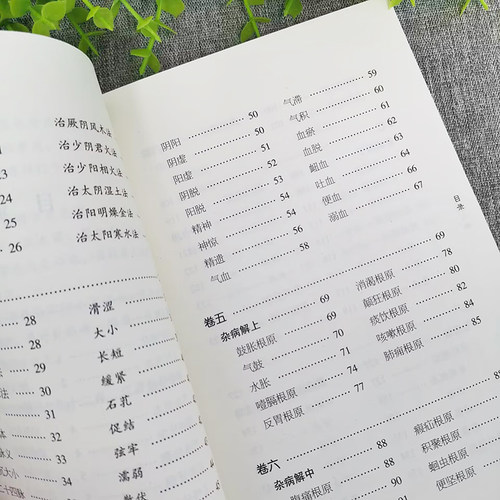 23
24
25
26
治厥阴风木法
治少阴君火法
治少阳相火法
治太阴湿土法
治阳明燥金法
治太阳寒水法
28
28
29
30
31
32
33
34
滑涩
大小
长短
缓紧
石芤
促结
弦牢
濡弱
散伏
阴阳 50
阴虚 50
阳虚 51
阴脱 52
阳脱 53
精神 54
神惊 54
精遗 56
气血 58
气滞 59
气积 60
血瘀 61
血脱 62
衄血 63
吐血 64
便血 66
溺血 67
目录
卷五 69
杂病解上 69
鼓胀根原 69
气鼓 70
水胀 71
噎膈根原 74
反胃根原 77
消渴根原 78
颠狂根原 80
痰饮根原 82
咳嗽根原 84
肺痈根原 85
卷六
杂病解中 88
腹痛根原 90
瘕疝根原
积聚根原
蛔虫根原
便坚根原